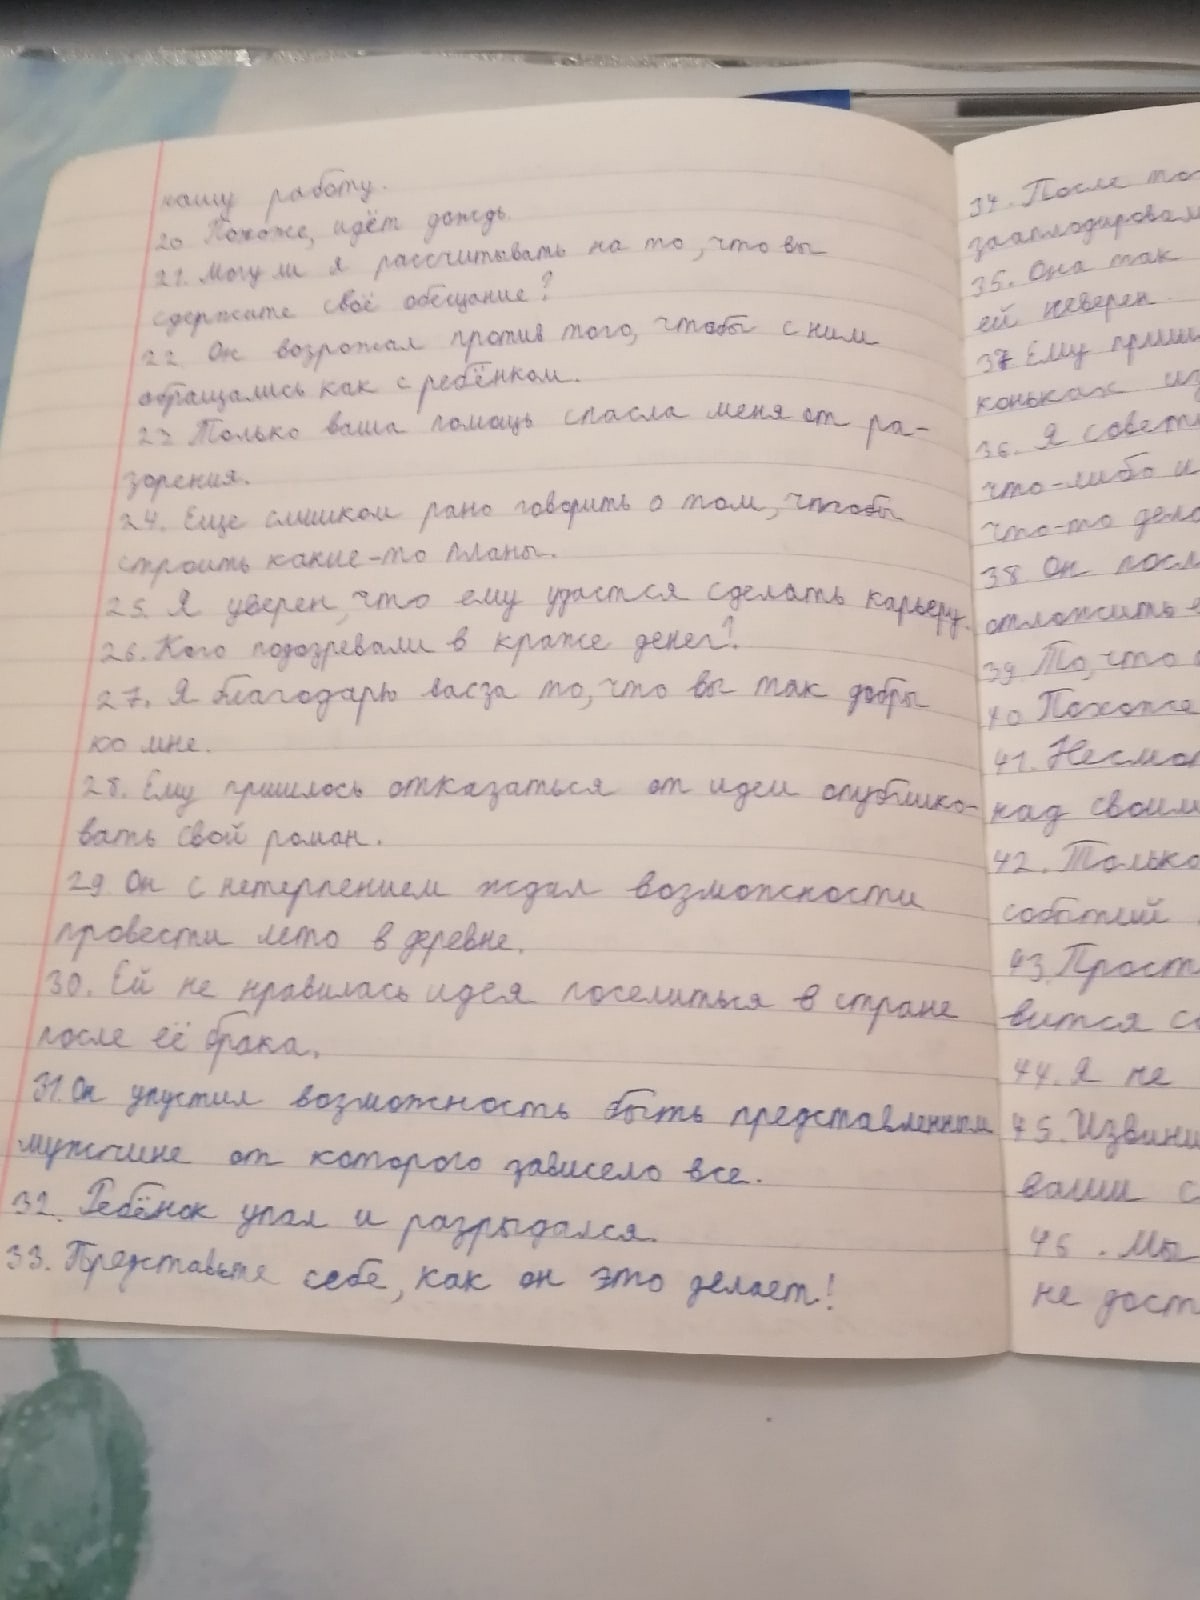 нашу работу.
20 Похоже, идёт дождь.
21. Могу ли я рассчитывать на то, что вы
сдержите своё обещание?
22. Он возрожал против того, чтобы с ним
обращались как с ребёнком.
23 Только ваша помощь спасла меня от ра-
зорения.
24. Еще слишком рано говорить о том, чтобы
строить какие-то планы.
25. Я уверен, что ему удастся сделать карьеру.
26. Кого подозревали в краже денег?
27. Я благодарю васза то, что вы так добры
ко мне.
28. Ему пришлось отказаться от идеи опублико-
вать свой роман.
29 Он с нетерпением ждал возможности
провести лето в деревне.
30. Ей не нравилась идея поселиться в стране
после её брака.
31. Он упустил возможность быть представленным
мужчине от которого зависело все.
32. Ребёнок упал и разрыдался.
33. Представьте себе, как он это делает!
34. После
зааплодировал
35. Она так
ей неверен.
37 Ему приш
коньках из
36. Я совет
что-либо и
что-то дела
38 Он посл
отложить
39 То, что
40 Похоже
41. Несмот
над своим
42. Только
событий
43. Прост
вится со
44. Я не
45. Извини
ваши с
46. Мы
не дост